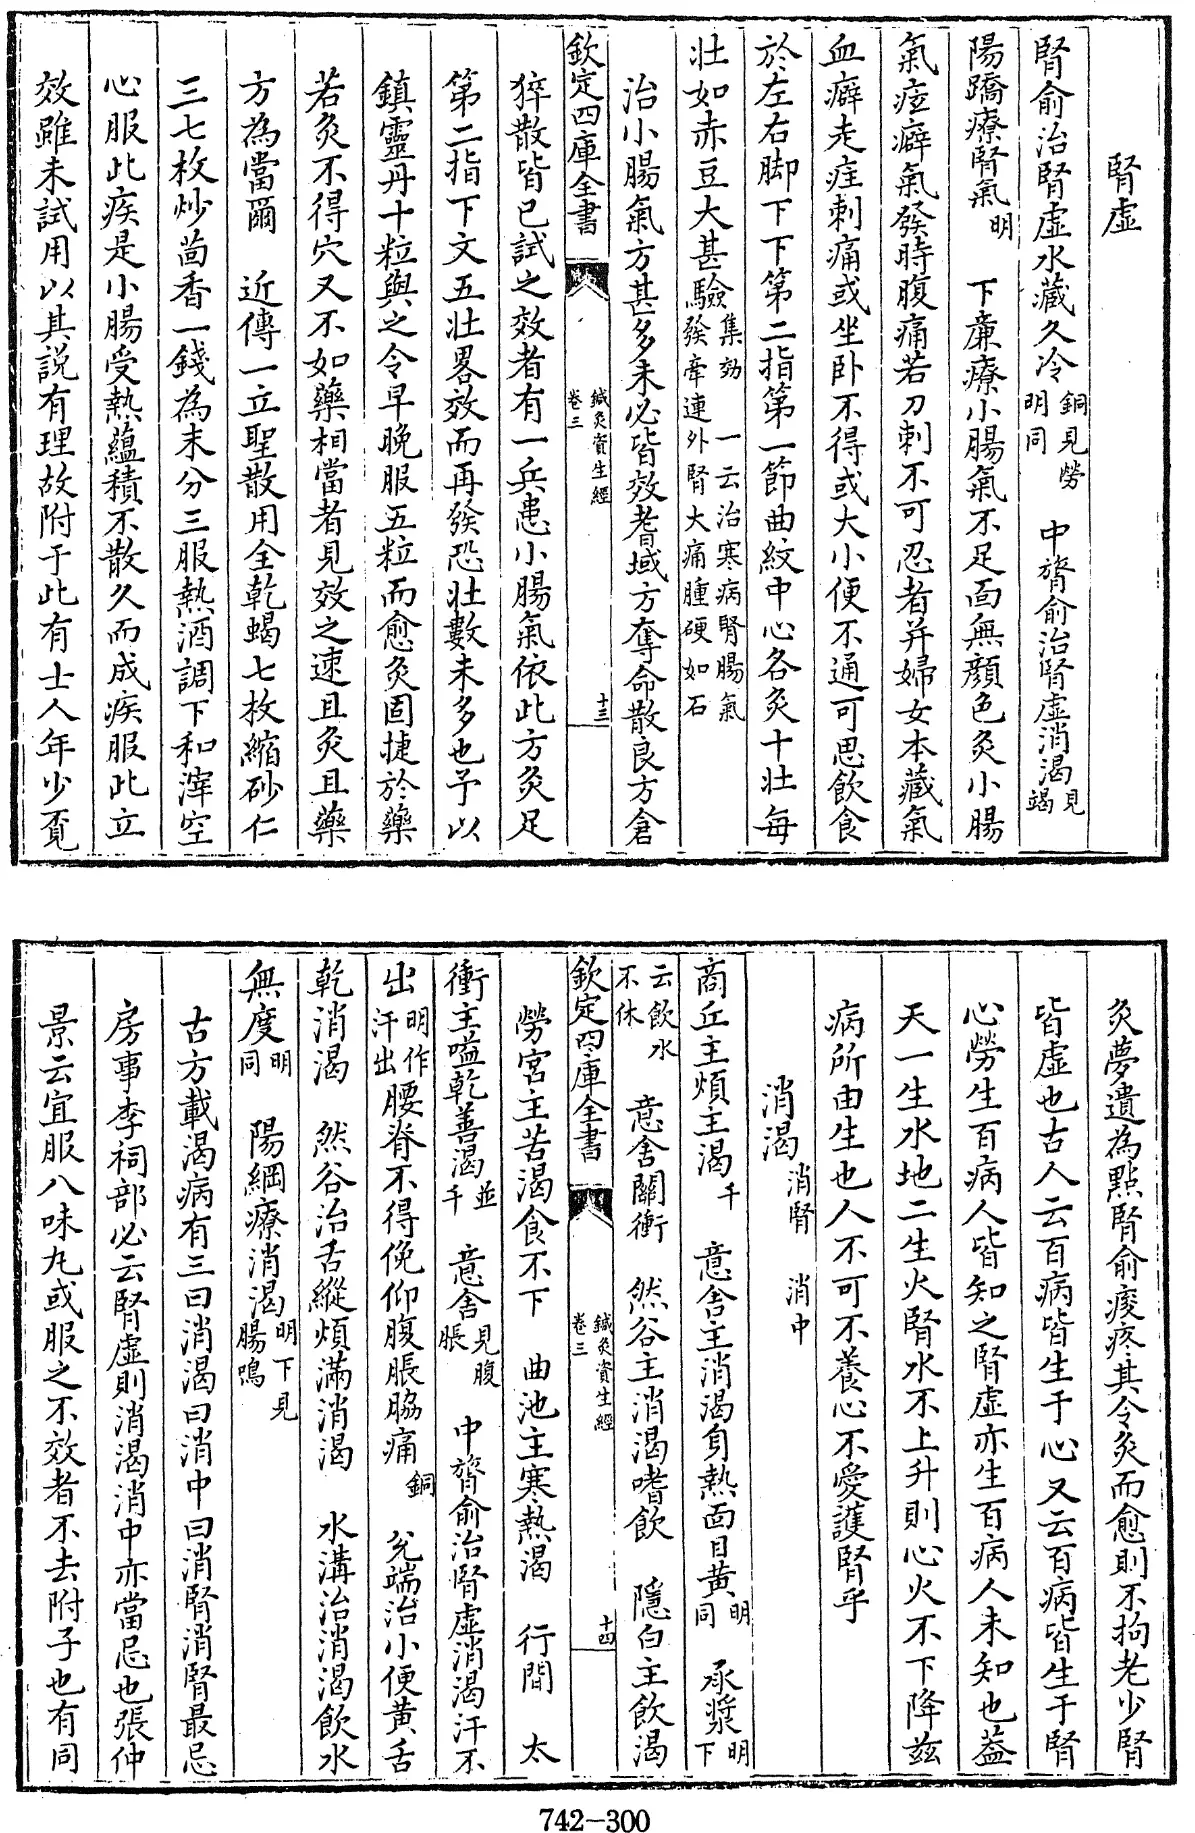 腎虛
腎俞治腎虛水藏久冷銅見勞明同　中膂俞治腎虛消渴見渴
陽蹻療腎氣明　下亷療小腸氣不足面無顏色灸小腸
氣疰癖氣發時腹痛若刀刺不可忍者并婦女本藏氣
血癖走疰刺痛或坐卧不得或大小便不通可思飲食
於左右脚下下第二指第一節曲紋中心各灸十壯每
壯如赤豆大甚驗集効　一云治寒病腎腸氣發牽連外腎大痛腫硬如石
治小腸氣方甚多未必皆效耆域方奪命散良方倉
欽定四庫全書　鍼灸資生經卷三　十三
猝散皆已試之效者有一兵患小腸氣依此方灸足
第二指下文五壯畧效而再發恐壯數未多也予以
鎮靈丹十粒與之令早晚服五粒而愈灸固捷於藥
若灸不得穴又不如藥相當者見效之速且灸且藥
方為當爾　近傳一立聖散用全乾蝎七枚縮砂仁
三七枚炒茴香一錢為末分三服熱酒調下和滓空
心服此疾是小腸受熱蘊積不散久而成疾服此立
效雖未試用以其説有理故附于此有士人年少覔
灸夢遺為點腎俞痠疼其令灸而愈則不拘老少腎
皆虛也古人云百病皆生于心又云百病皆生于腎
心勞生百病人皆知之腎虛亦生百病人未知也葢
天一生水地二生火腎水不上升則心火不下降兹
病所由生也人不可不養心不愛護腎乎
消渴消腎　消中
商丘主煩主渴千　意舍主消渴身熱面目黃明同　承漿明下
云飲水不休　意舍關衝　然谷主消渴嗜飲　隱白主飲渴
欽定四庫全書　鍼灸資生經卷三　十四
勞宮主苦渴食不下　曲池主寒熱渴　行間　太
衝主嗌乾善渴並千　意舍見腹脹　中膂俞治腎虛消渴汗不
出明作汗出腰脊不得俛仰腹脹脇痛銅　兊端治小便黃舌
乾消渴　然谷治舌縱煩滿消渴　水溝治消渴飲水
無度明同　陽綱療消渴明下見腸鳴
古方載渴病有三曰消渴曰消中曰消腎消腎最忌
房事李祠部必云腎虛則消渴消中亦當忌也張仲
景云宜服八味丸或服之不效者不去附子也有同
742-300